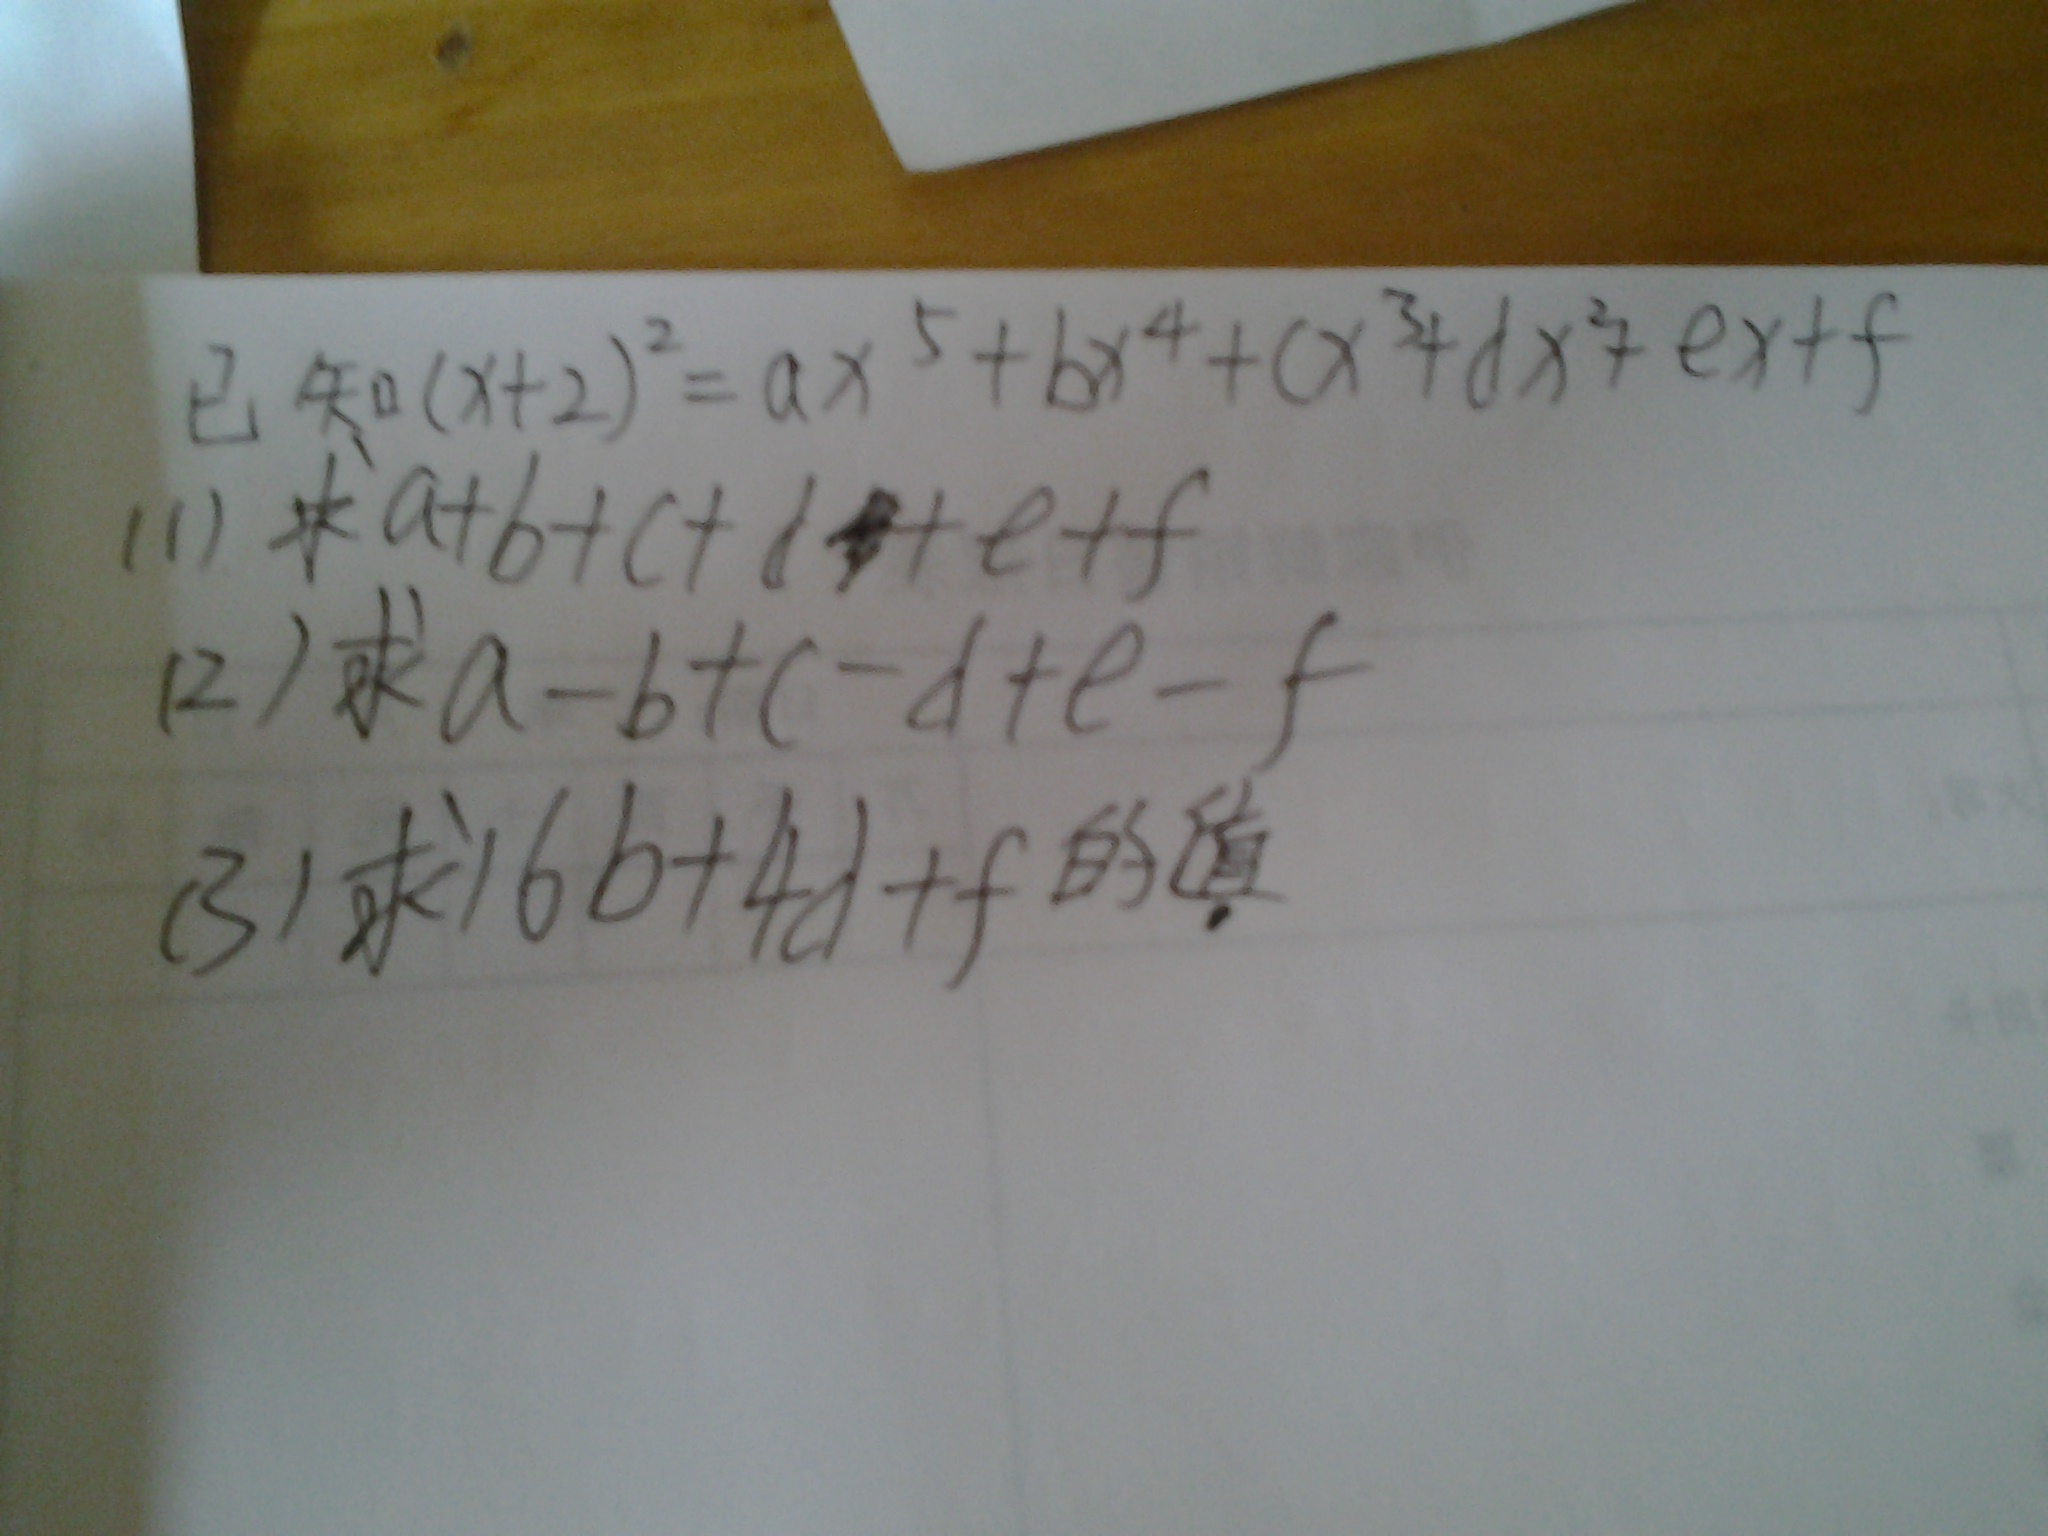 已知(x+2)²=ax⁵+bx⁴+cx³+dx²+ex+f
(1)求a+b+c+d+e+f
(2)求a-b+c-d+e-f
(3)求16b+4d+f的值.